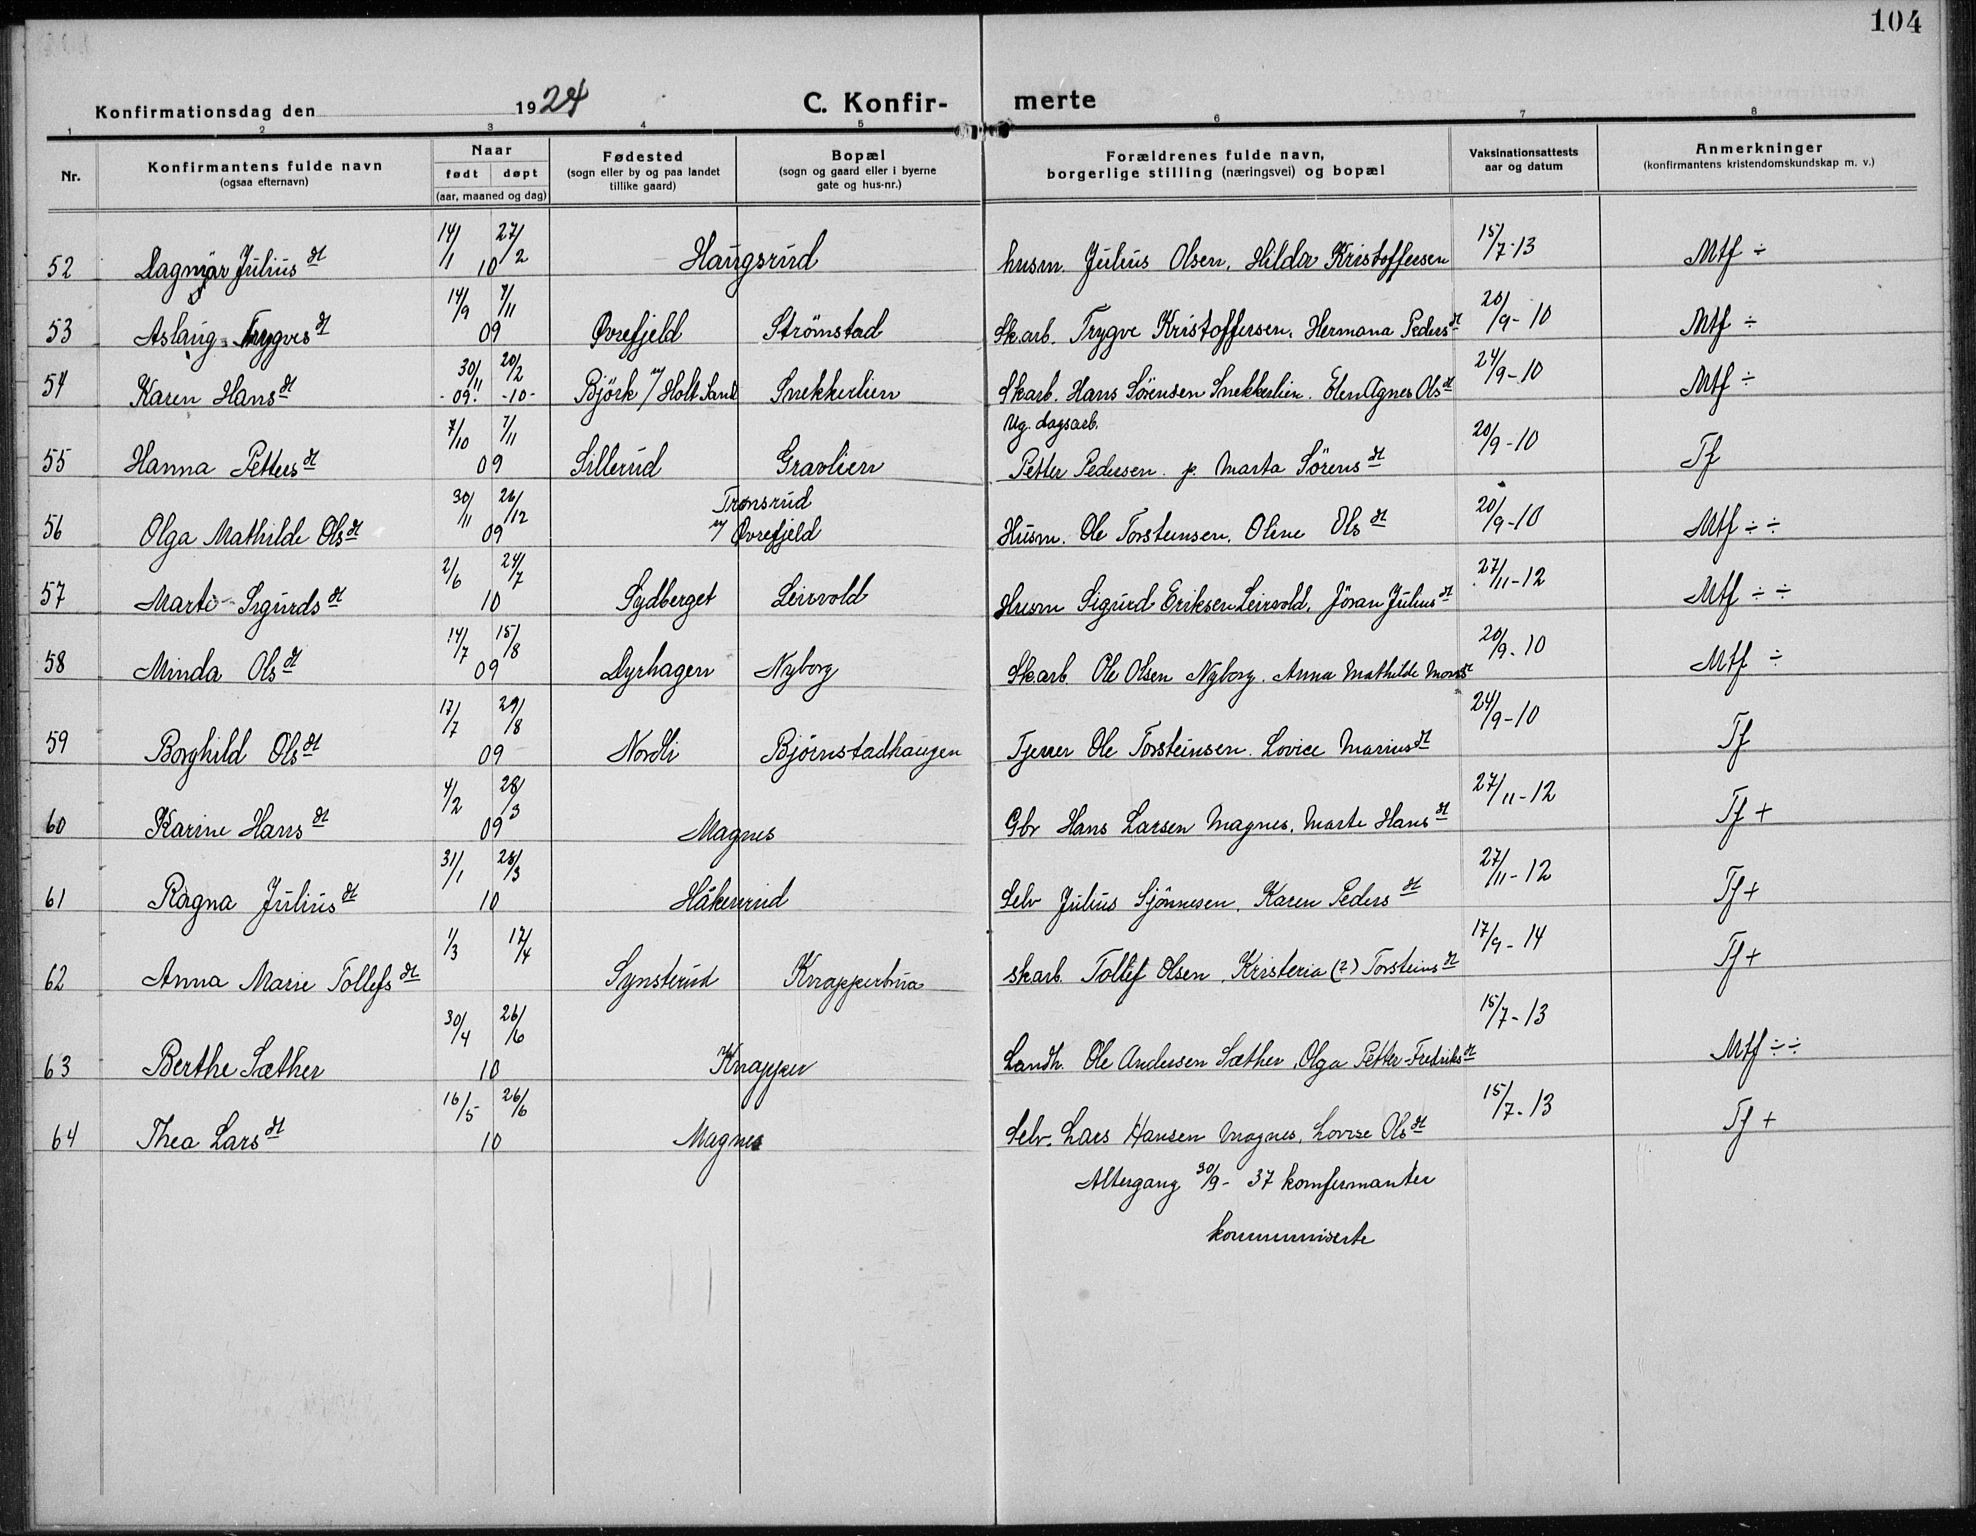 104
Konfirmationsdag den 1924 C. Konfir- merte
1 2 3 4 5 6 7 8
Nr. Konfirmantens fulde navn (ogsaa efternavn) Naar født døpt (aar, maaned og dag) Fødested (sogn eller by og paa landet tillike gaard) Bopæl (sogn og gaard eller i byerne gate og hus-nr.) Forældrenes fulde navn, borgerlige stilling (næringsvei) og bopæl Vaksinationsattests aar og datum Anmerkninger (konfirmantens kristendomskundskap m. v.)
52 Dagmar Julius dt 14/1 27/2 10 Haugsrud husm. Julius Olsen, Hilda Kristoffersen 15/7-13 Mtf ÷
53 Aslaug Trygves dt 14/9 7/11 09 Øvrefjeld Strømstad Skarb. Trygve Kristoffersen, Hermana Peders dt 20/9-10 Mtf ÷
54 Karen Hans dt 30/11 -09. 20/2 -10- Björk u/ Holt Sand Snekkerlien Skarb. Hans Sörensen Snekkerlien. Elen Agnes Ols dt 24/9-10 Mtf ÷
55 Hanna Petters dt 7/10 7/11 09 Sillerud Gravlien Ug. dagsarb. Petter Pedersen. p. Marta Sörens dt 20/9-10 Tf
56 Olga Mathilde Ols dt 30/11 26/12 09 Tronsrud u/ Øvrefjeld Husm. Ole Torsteinsen, Oline Ols dt 20/9-10 Mtf ÷ ÷
57 Marte Sigurds dt 2/6 24/7 10 Sydberget Leirvold Husm Sigurd Eriksen Leirvold, Jöran Julius dt 27/11-12 Mtf ÷ ÷
58 Minda Ols dt 14/7 15/8 09 Dyrhagen Nyborg Skarb. Ole Olsen Nyborg. Anna Mathilde 20/9-10 Mtf ÷
59 Borghild Ols dt 17/7 29/8 09 Nordli Bjørnstadhaugen Tjener Ole Torsteinsen. Lovice Marius dt 24/9-10 Tf
60 Karine Hans dt 4/2 28/3 09 Magnes Gbr Hans Larsen Magnes, Marte Hans dt 27/11-12 Tf +
61 Ragna Julius dt 31/1 28/3 10 Håkenrud Selv Julius Sjönnesen, Karen Peders dt 27/11-12 Tf +
62 Anna Marie Tollefs dt 1/3 17/4 Synsterud Knapperbua skarb. Tollef Olsen, Kristeria (?) Torsteins dt 17/9-14 Tf +
63 Berthe Sæther 30/4 26/6 10 Knapper Landh. Ole Andersen Sæther, Olga Petter-Fredriks dt 15/7-13 Mtf ÷ ÷
64 Thea Lars dt 16/5 26/6 10 Magnes Selv. Lars Hansen Magnes, Lovise Ols dt 15/7-13 Tf +
Altergang 30/9 - 37 komfermanter
kommuniserte